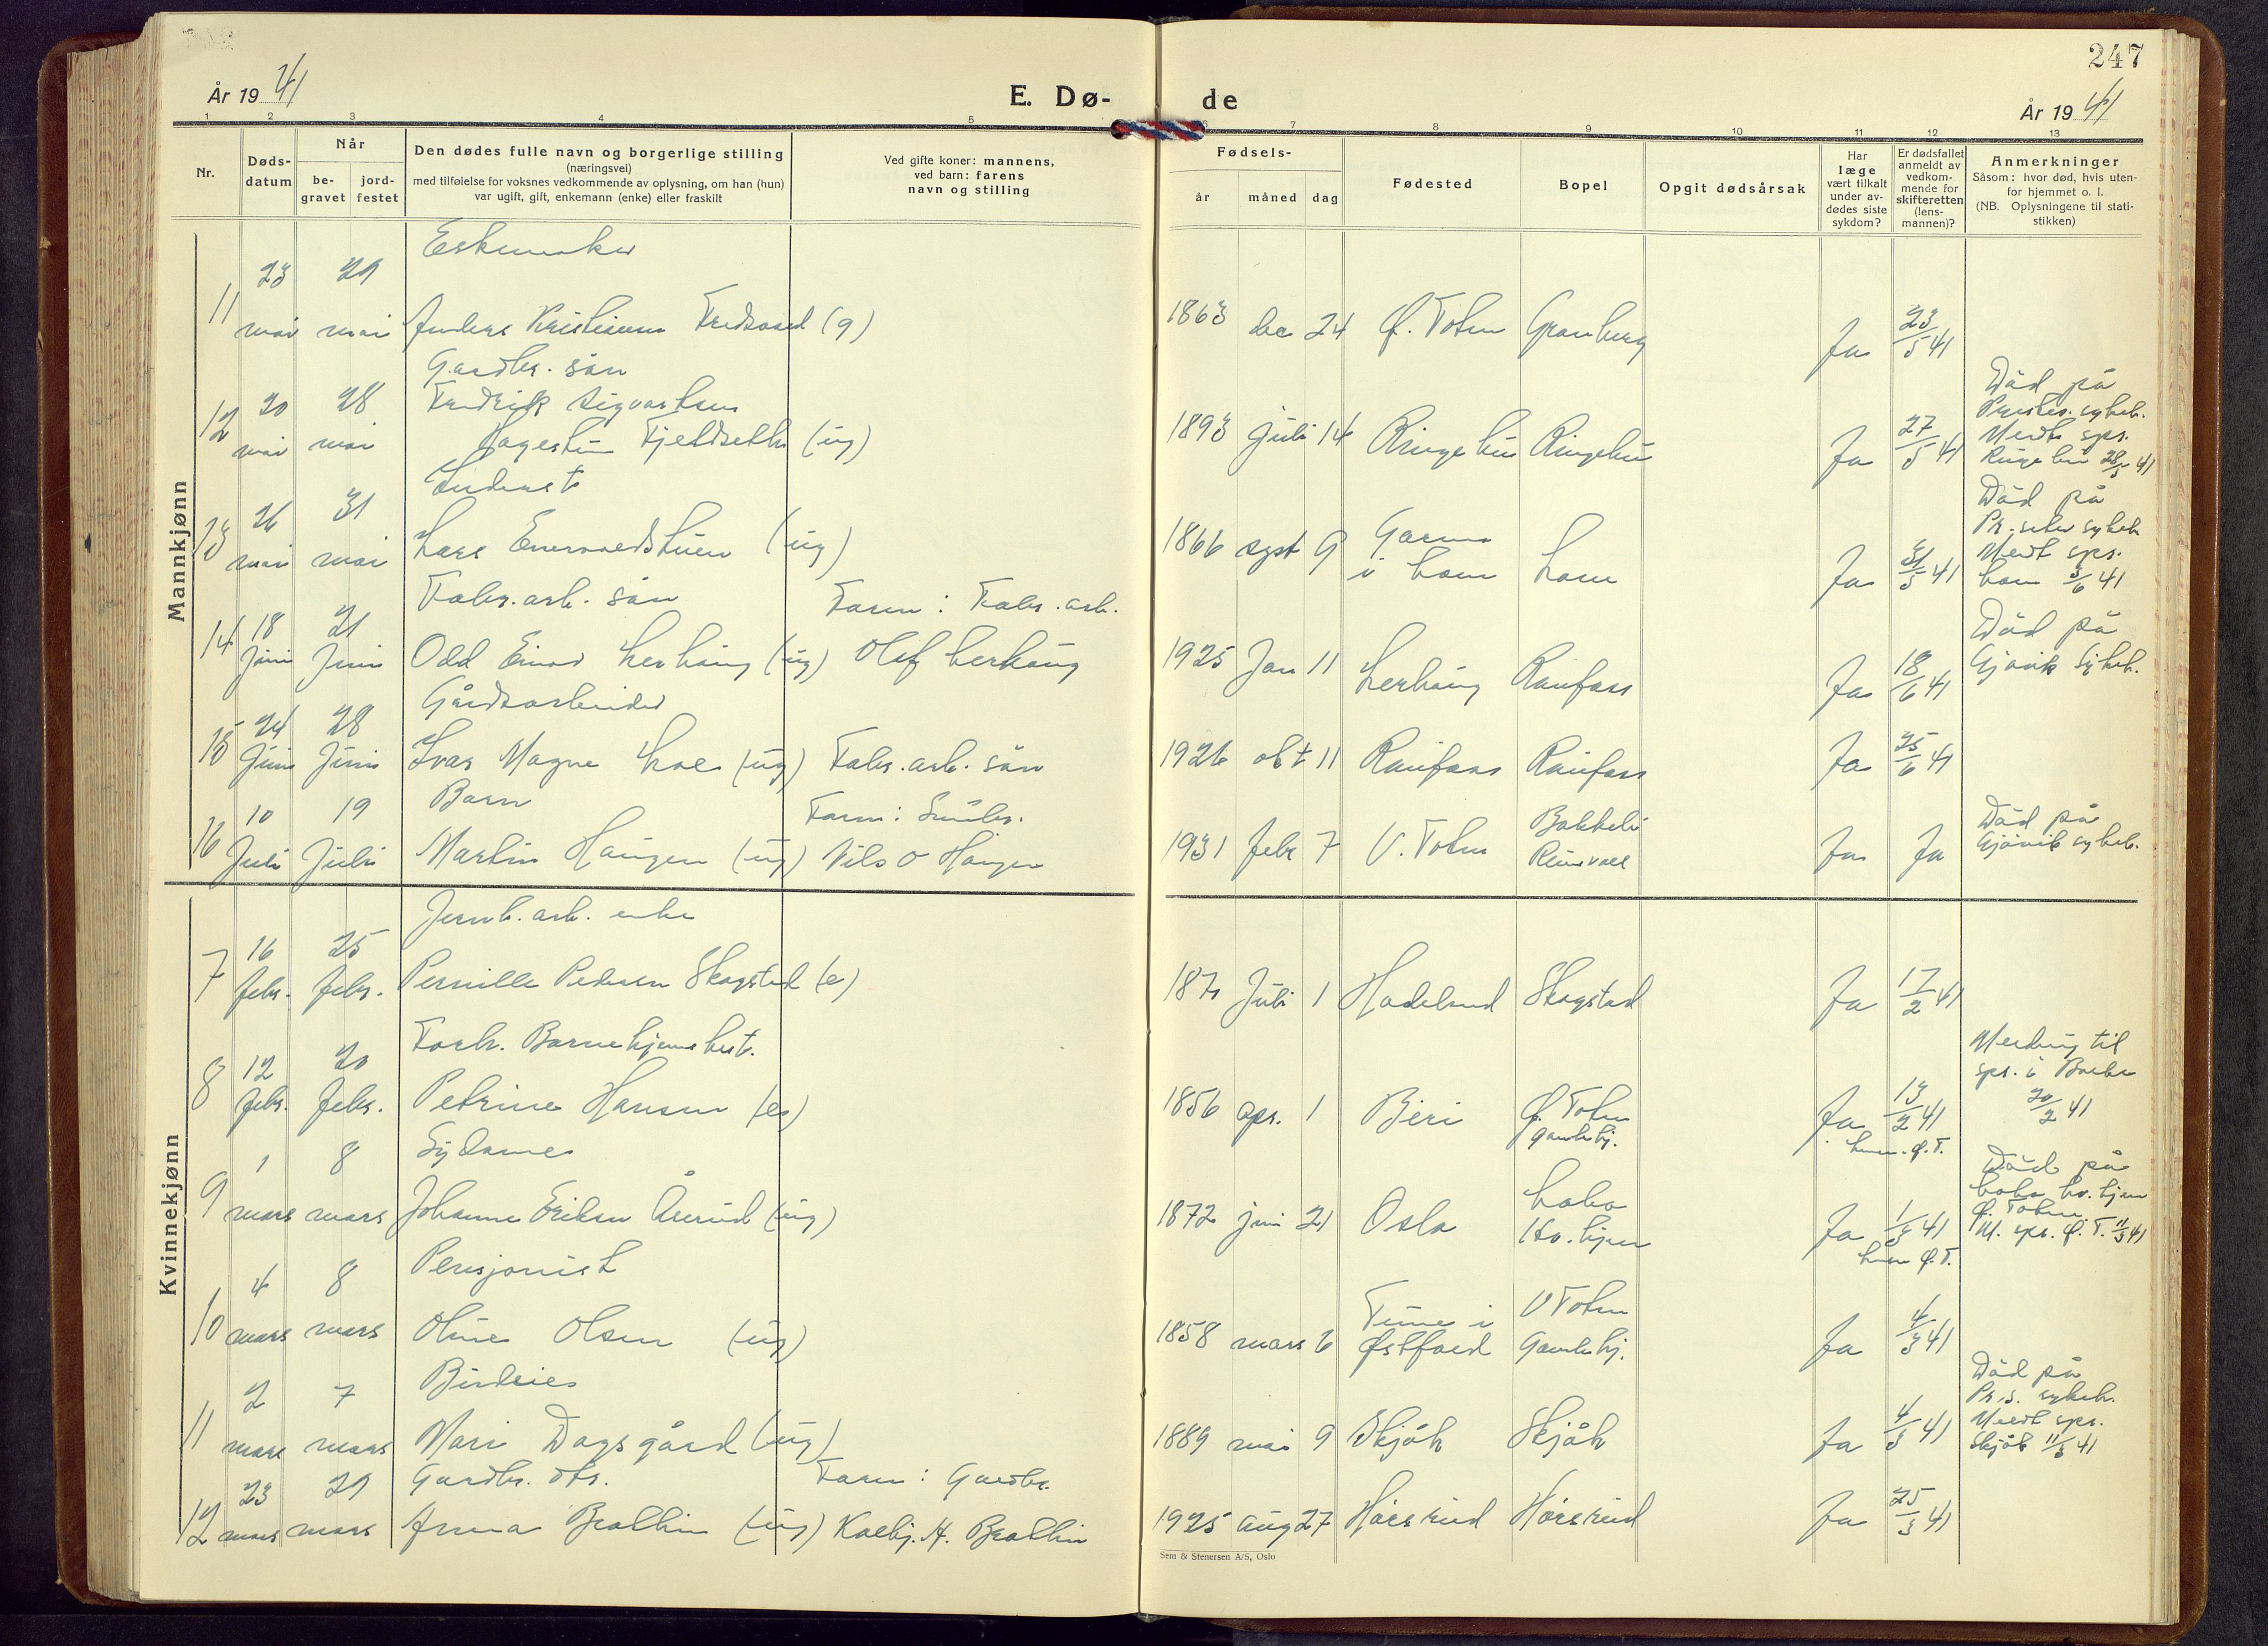 247
År 19 41
E. Dø-
de
År 19 41
1 2 3 4 5 6 7 8 9 10 11 12 13
Nr.
Døds-
datum
Når
be-
gravet
jord-
festet
Den dødes fulle navn og borgerlige stilling
(næringsvei)
med tilføielse for voksnes vedkommende av oplysning, om han (hun)
var ugift, gift, enkemann (enke) eller fraskilt
Ved gifte koner: mannens,
ved barn: farens
navn og stilling
Fødsels-
år måned dag
Fødested
Bopel
Opgit dødsårsak
Har
læge
vært tilkalt
under av-
dødes siste
sykdom?
Er dødsfallet
anmeldt av
vedkom-
mende for
skifteretten
(lens-
mannen)?
Anmerkninger
Såsom: hvor død, hvis uten-
for hjemmet o. l.
(NB. Oplysningene til stati-
stikken)
Mannkjønn
Eskemaker
11 23 mai 29 mai Anders Kristiansen (g) 1863 des 24 Ø. Toten Granberg Ja 23/5 41
Gardbr. sön
12 20 mai 28 mai Fredrik Sigvartsen
Hagestun Fjeldseth (ug) 1893 juli 14 Ringebu Ringebu Ja 27/5 41
Död på
Prestes. sykeh.
Meldt spr.
Ringebu 28/5 41
Inderst
13 26 mai 31 mai Lars (ug) 1866 sept 9 Garmo
i Lom Lom Ja 31/5 41
Död på
Pr. seter sykeh
Meldt spr.
Lom 3/6 41
Fabr. arb. sön Faren: Fabr. arb.
14 18 Juni 21 Juni Odd Einar Lerhaug (ug) Olaf Lerhaug 1925 Jan 11 Lerhaug Raufoss Ja 18/6 41
Död på
Gjövik Sykeh.
Gårdsarbeider
15 24 Juni 28 Juni Ivar Magne (ug) Fabr. arb. sön 1926 okt 11 Raufoss Raufoss Ja 25/6 41
Barn Faren: Småbr.
16 10 Juli 19 Juli Martin Haugen (ug) Nils O Haugen 1931 febr 7 V. Toten Bakkeli
Reinsvoll Ja Ja
Död på
Gjövik sykeh.
Kvinnekjønn
Jernb. arb. enke
7 16 febr. 25 febr. Pernille Pedersen Skogstad (e) 187 Juli 1 Hadeland Skogstad Ja 17/2 41
Forh. Barnehjemsbest.
8 12 febr. 20 febr. Petrine Hansen (e) 1856 apr. 1 Biri Ø. Toten
Gamlehj. Ja 13/2 41
Lensm. Ø. T.
Melding til
spr. i
20/2 41
Sydame
9 1 mars 8 mars Johanne Eriksen (ug) 1872 juni 21 Oslo Labo
Kv. hjem Ja 1/3 41
Lensm Ø. T.
Död på
Labo kv. hjem
Ø. Toten
M. spr. Ø. T. 11/3 41
Pensjonist
10 4 mars 8 mars Oline Olsen (ug) 1858 mars 6 Tune i
Østfold V Toten
Gamlehj. Ja 4/3 41
Budeie
11 2 mars 7 mars Mari Dagsgård (ug) 1889 mai 9 Skjåk Skjåk Ja 4/3 41
Död på
Pr. s. sykeh.
Meldt spr.
Skjåk 11/3 41
Gardbr. dtr. Faren: Gardbr.
12 23 mars 29 mars Anna Brattlien (ug) Kolbj. H. Brattlien 1925 aug 27 Hörsrud Hörsrud Ja 25/3 41
Sem & Stenersen A/S, Oslo